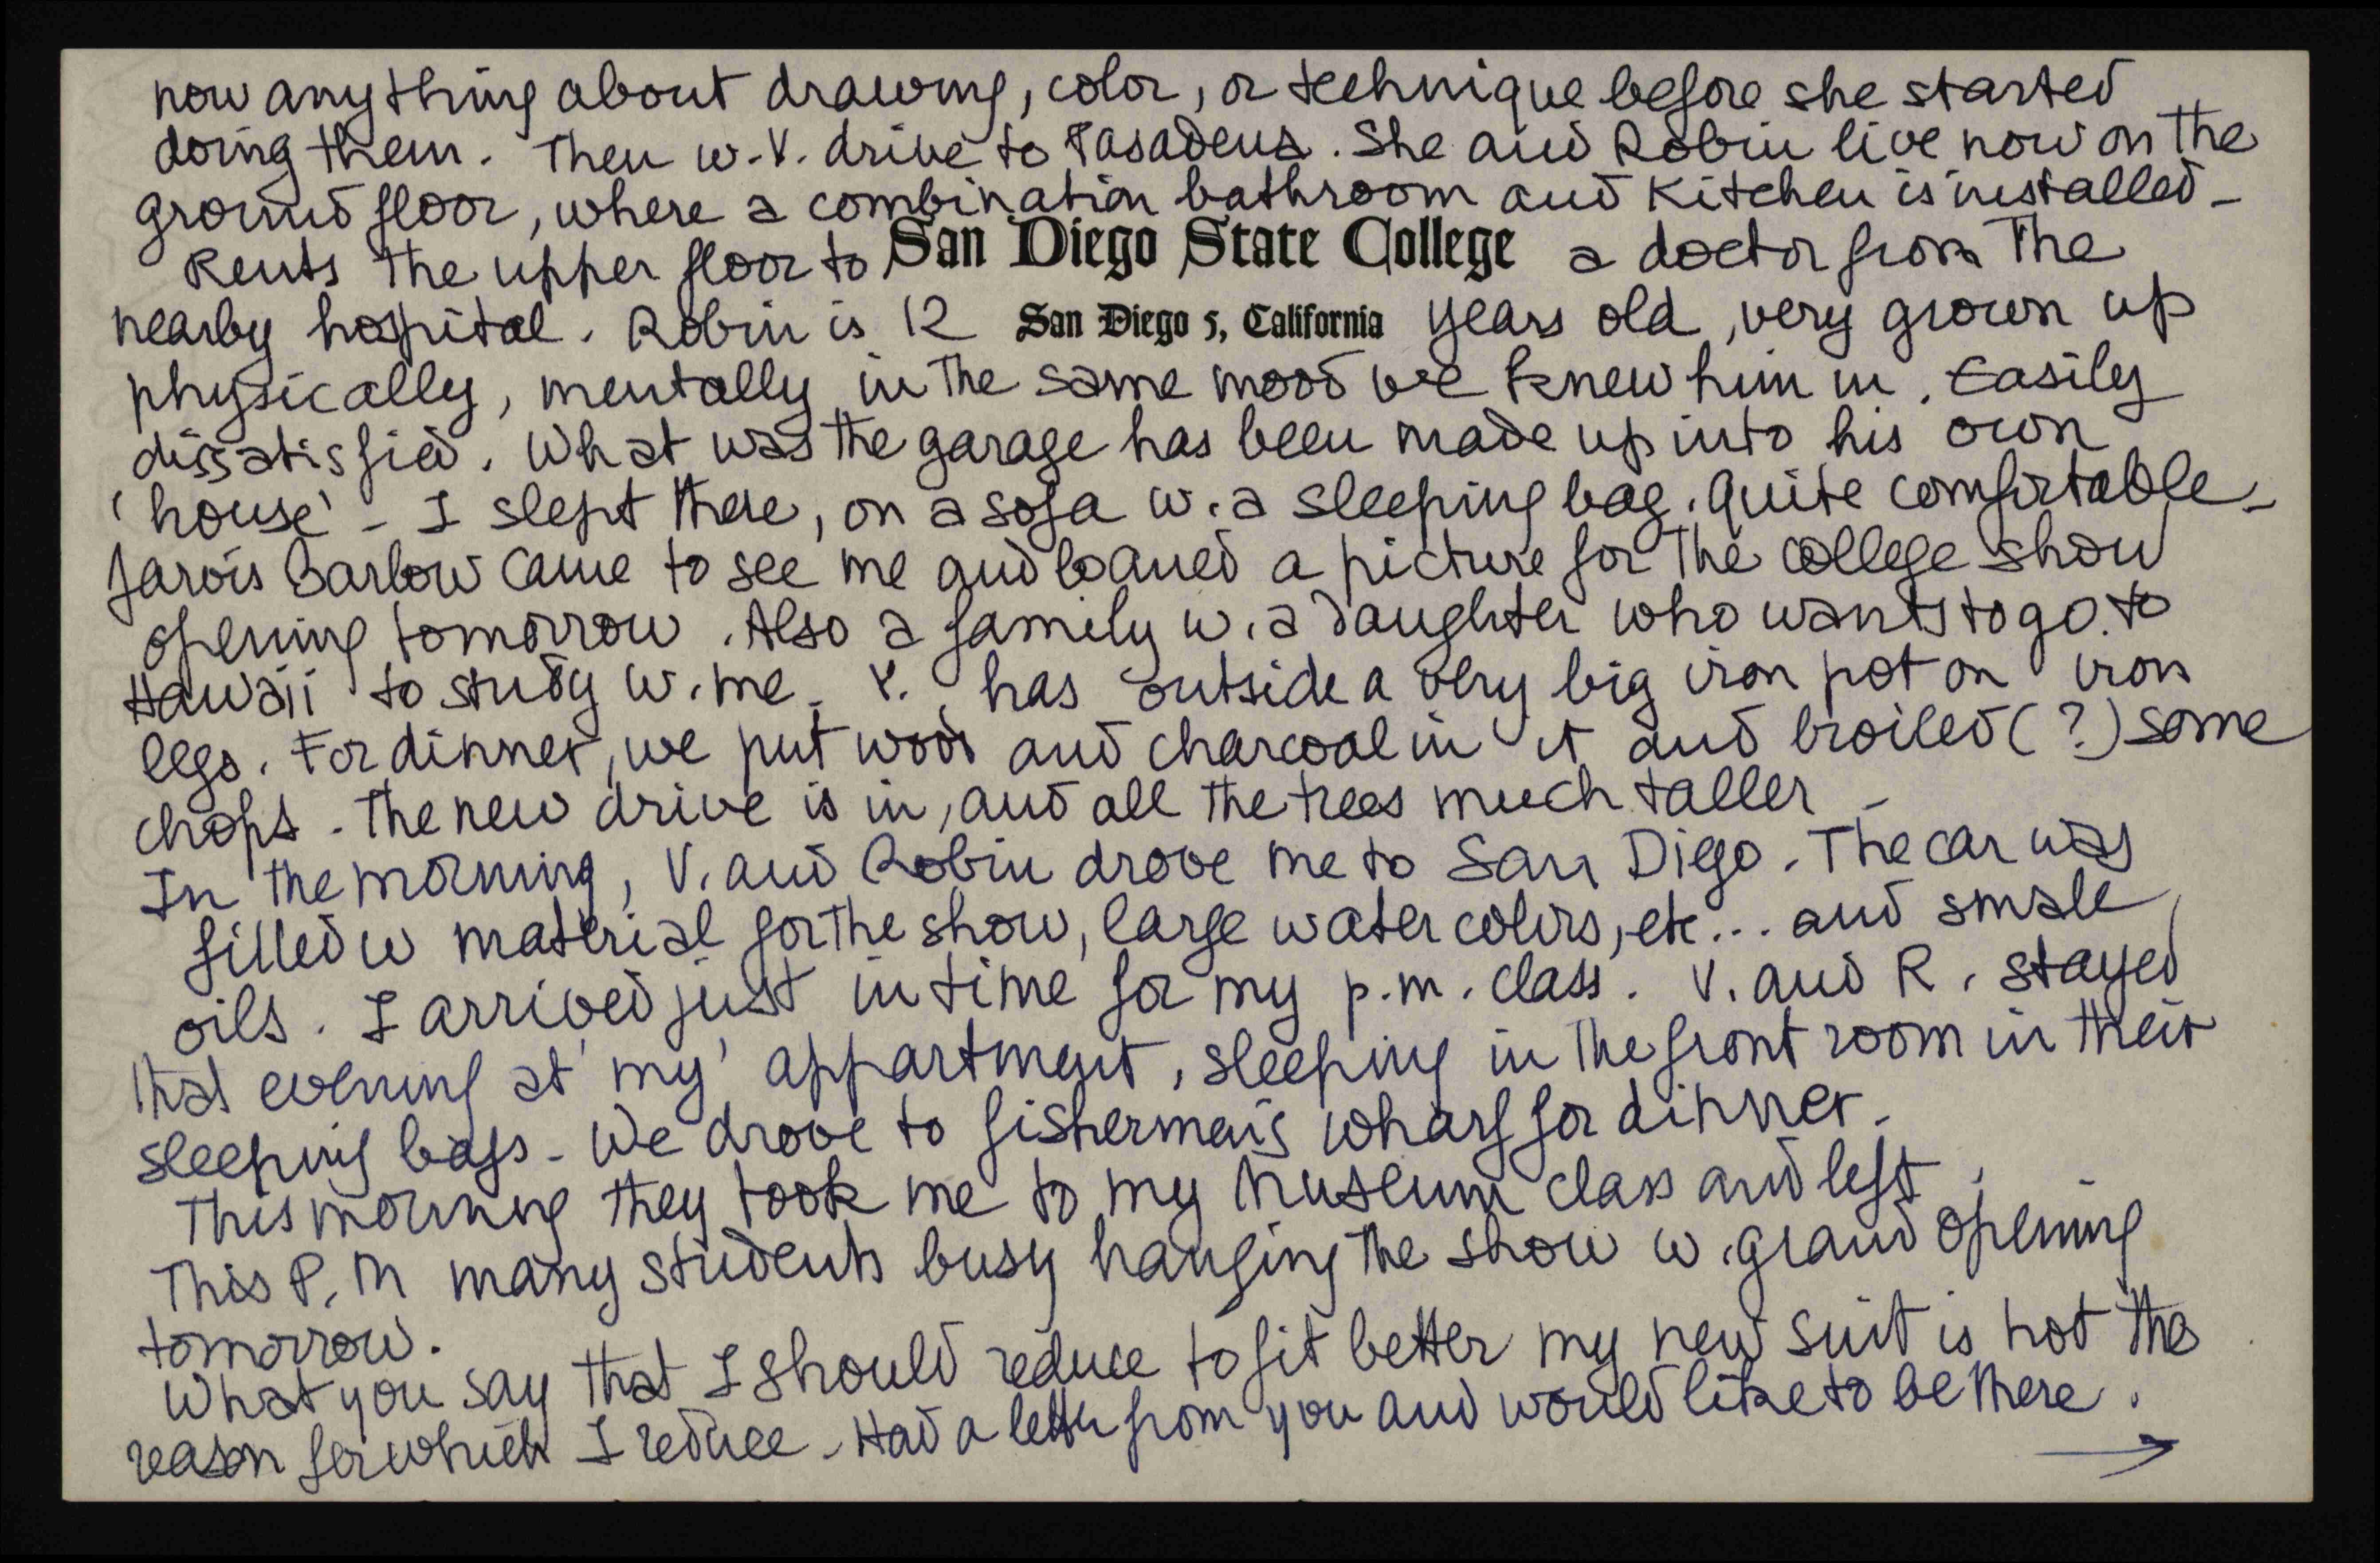 now anything about drawing, color, or technique before she started
doing them. Then w. V. drive to Pasadena. She and Robin live now on the
ground floor, where a combination bathroom and Kitchen is installed -
Rents the upper floor to San Diego State College a doctor from the
nearby hospital. Robin is 12 San Diego 5, California years old, very grown up
physically, mentally in the same mood we knew him in. Easily
dissatisfied. What was the garage has been made up into his own
'house' - I slept there, on a sofa w. a sleeping bag. Quite comfortable -
Jarvis Barlow came to see me and loaned a picture for the college show
opening tomorrow. Also a family w. a daughter who wants to go to
Hawaii to study w. me. V. has outside a very big iron pot on iron
legs. For dinner, we put wood and charcoal in it and broiled (?) some
chops. The new drive is in, and all the trees much taller -
In the morning, V. and Robin drove me to San Diego. The car was
filled w material for the show, large water colors, etc... and small
oils. I arrived just in time for my p.m. class. V. and R. stayed
that evening at 'my' appartment, sleeping in the front room in their
sleeping bags - We drove to fisherman's wharf for dinner.
This morning they took me to my Museum class and left.
This P.M many students busy hanging the show w. grand opening
tomorrow.
What you say that I should reduce to fit better my new suit is not the
reason for which I reduce - Had a letter from you and would like to be there.
→